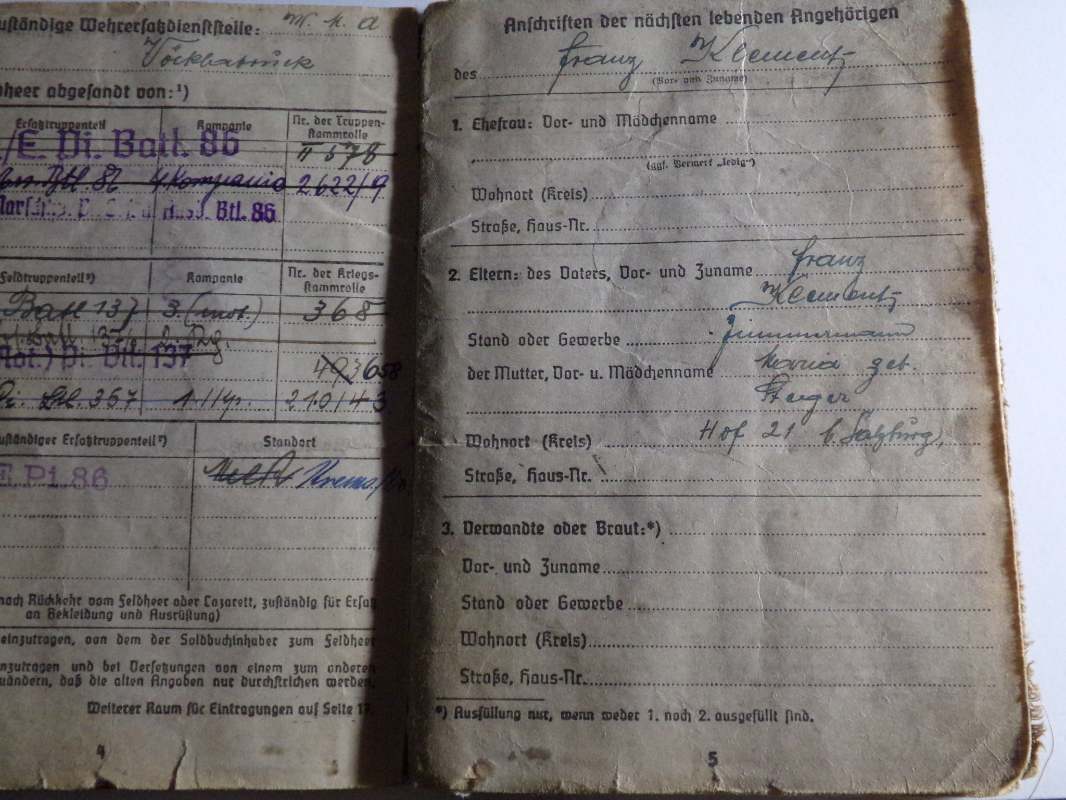 zuständige Wehrersatzdienststelle: W. K. A
Vöcklabruck
dheer abgesandt von:¹)
Ersatztruppenteil Kompanie Nr. der Truppen-
stammrolle
./E. Pi. Batl. 86 II 578
Btl. 86 4. Kompanie 2622/9
Btl. 86
Feldtruppenteil²) Kompanie Nr. der Kriegs-
stammrolle
Batl 137 3. (mot.) 368
Batl 137
(Mot.) Pi. Btl. 137
Pi. Btl. 367 210/43
uständiger Ersatztruppenteil³) Standort
E. Pi. 86 Krems
nach Rückkehr vom Feldheer oder Lazarett, zuständig für Ersatz
an Bekleidung und Ausrüstung)
einzutragen, von dem der Soldbuchinhaber zum Feldheer
nzutragen und bei Versetzungen von einem zum anderen
uändern, daß die alten Angaben nur durchstrichen werden,
Weiterer Raum für Eintragungen auf Seite 17.
4
Anschriften der nächsten lebenden Angehörigen
des Franz Klementz
(Vor- und Zuname)
1. Ehefrau: Vor- und Mädchenname
(ggf. Vermerk „ledig“)
Wohnort (Kreis)
Straße, Haus-Nr.
2. Eltern: des Vaters, Vor- und Zuname Franz
Klementz
Stand oder Gewerbe Zimmermann
der Mutter, Vor- u. Mädchenname Maria geb.
Steger
Wohnort (Kreis) Hof 21 b. Salzburg,
Straße, Haus-Nr.
3. Verwandte oder Braut:*)
Vor- und Zuname
Stand oder Gewerbe
Wohnort (Kreis)
Straße, Haus-Nr.
*) Ausfüllung nur, wenn weder 1. noch 2. ausgefüllt sind.
5